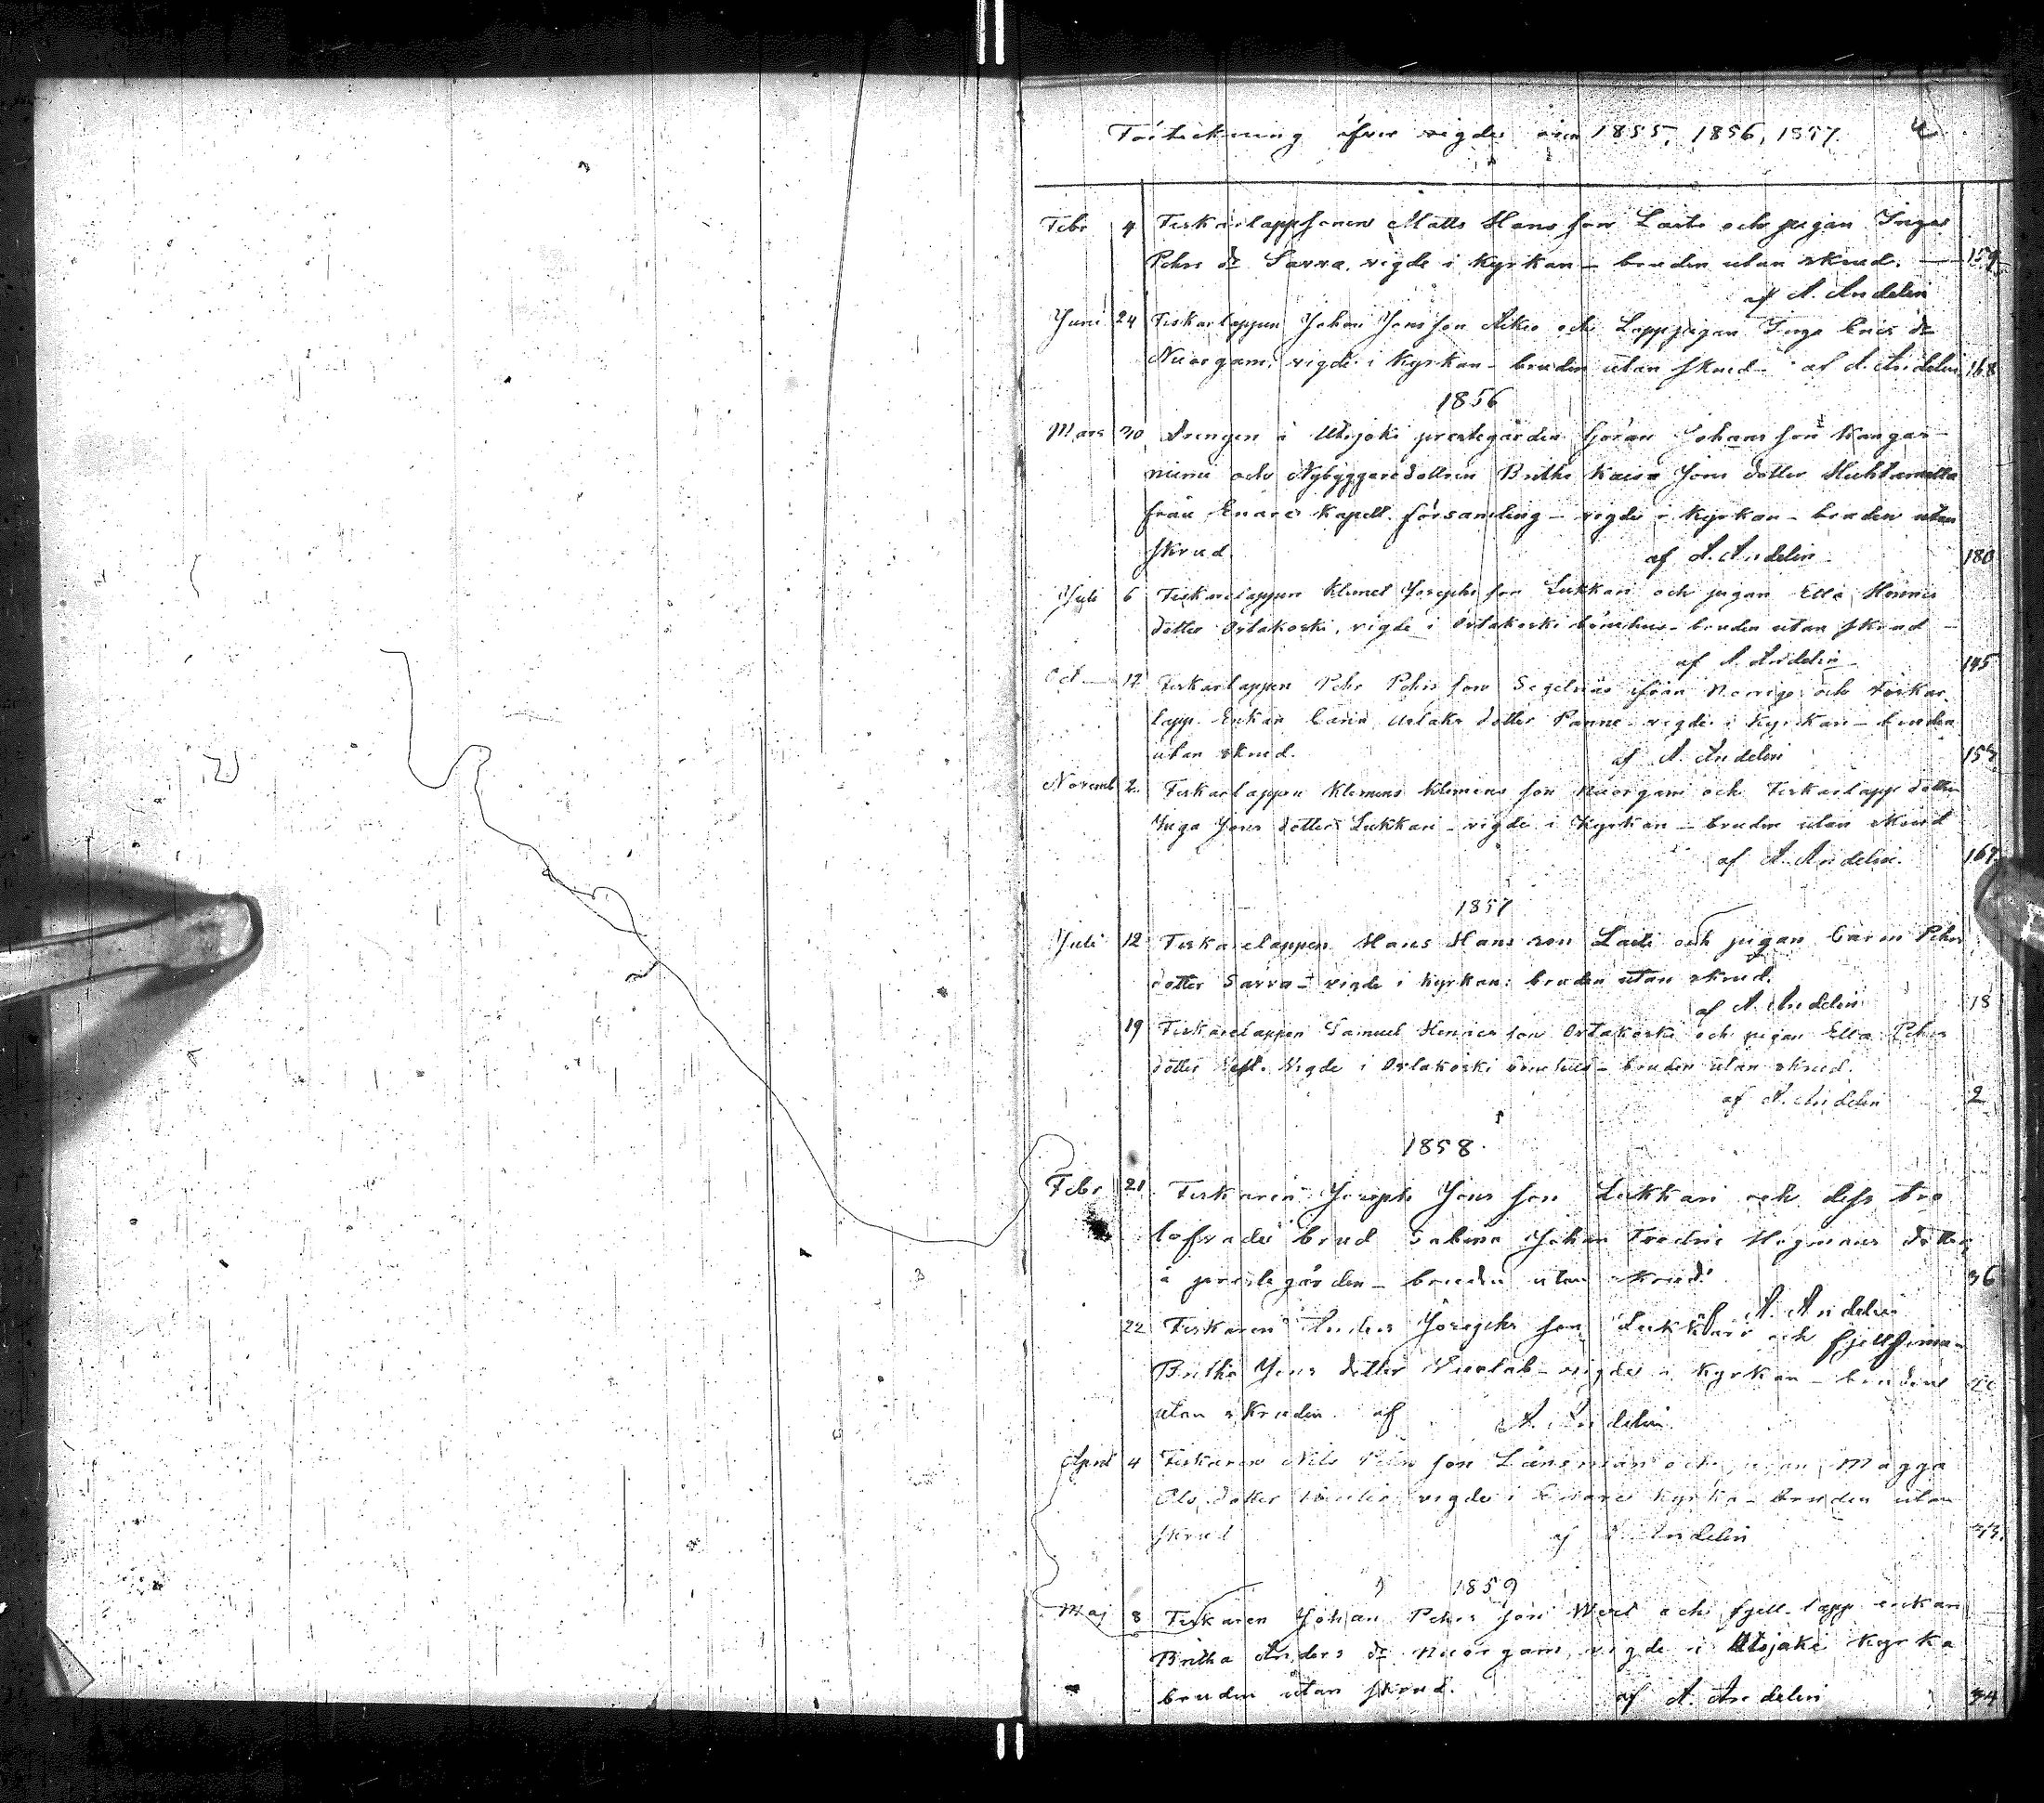 Förteckning öfver vigde åren 1855, 1856, 1857. 4
Febr 4 Fiskarlappsonen Matts Hans son Laiti och pigan Inga
Pehrs dr Sarra, vigde i Kyrkan – bruden utan skrud. — 159
af A. Andelin
Juni 24 Fiskarlappen Johan Jons son Aikio och Lapppigan Inga Erics dr
Nuorgam, vigde i Kyrkan – bruden utan skrud – af A. Andelin 168
1856
Mars 30 Drengen å Utsjoki prestegården Göran Johans son Kangas-
niemi och Nybyggaredottren Britha Kaisa Jons dotter
från Enare Kapell församling – vigde i Kyrkan – bruden utan
skrud. af A. Andelin 180
Juli 6 Fiskarelappen Klemet Josephs son Lukkari och pigan Ella Hinrics
dotter Ostakoski, vigde i Ostakoski bönehus – bruden utan skrud –
af A. Andelin 145
Oct 17 Fiskarlappen Pehr Pehrs son Segelnäs ifrån Norrige och Fiskar
lapp Enkan Carin Aslaks dotter Panne – vigde i Kyrkan – bruden
utan skrud. af A. Andelin 157
Novemb 2. Fiskarlappen Klemens Klemens son Nuorgam och Fiskarlapp dottren
Inga Jons dotter Lukkari – vigde i Kyrkan – bruden utan skrud
af A. Andelin. 167
1857
Juli 12 Fiskarelappen Hans Hans son Laiti och pigan Carin Pehrs
dotter Sarra – vigde i Kyrkan: bruden utan skrud.
af A. Andelin 18
19 Fiskarelappen Samuel Henrics son Ostakoski och pigan Ella Pehrs
dotter Vigde i Ostakoski bönehus – bruden utan skrud.
af A. Andelin 2
1858.
Febr 21 Fiskaren Joseph Jons son Lukkari och dess tro
lofvade brud Sabina Johan Fredric Högmans dotter
å prestegården – bruden utan skrud. 36
af A. Andelin
22 Fiskaren Anders Josephs son Lukkari och fjell
Britha Jons dotter – vigde i Kyrkan – bruden
utan skruden af A. Andelin
April 4 Fiskaren Nils Pehrs son Länsman och pigan Magga
Ols dotter vigde i Enare Kyrka – bruden utan
skrud af A. Andelin 33.
1859
Maj 8 Fiskaren Johan Pehrs son och fjell-lapp enkan
Britha Anders dr Nuorgam, vigde i Utsjoki Kyrka
bruden utan skrud. af A. Andelin 34